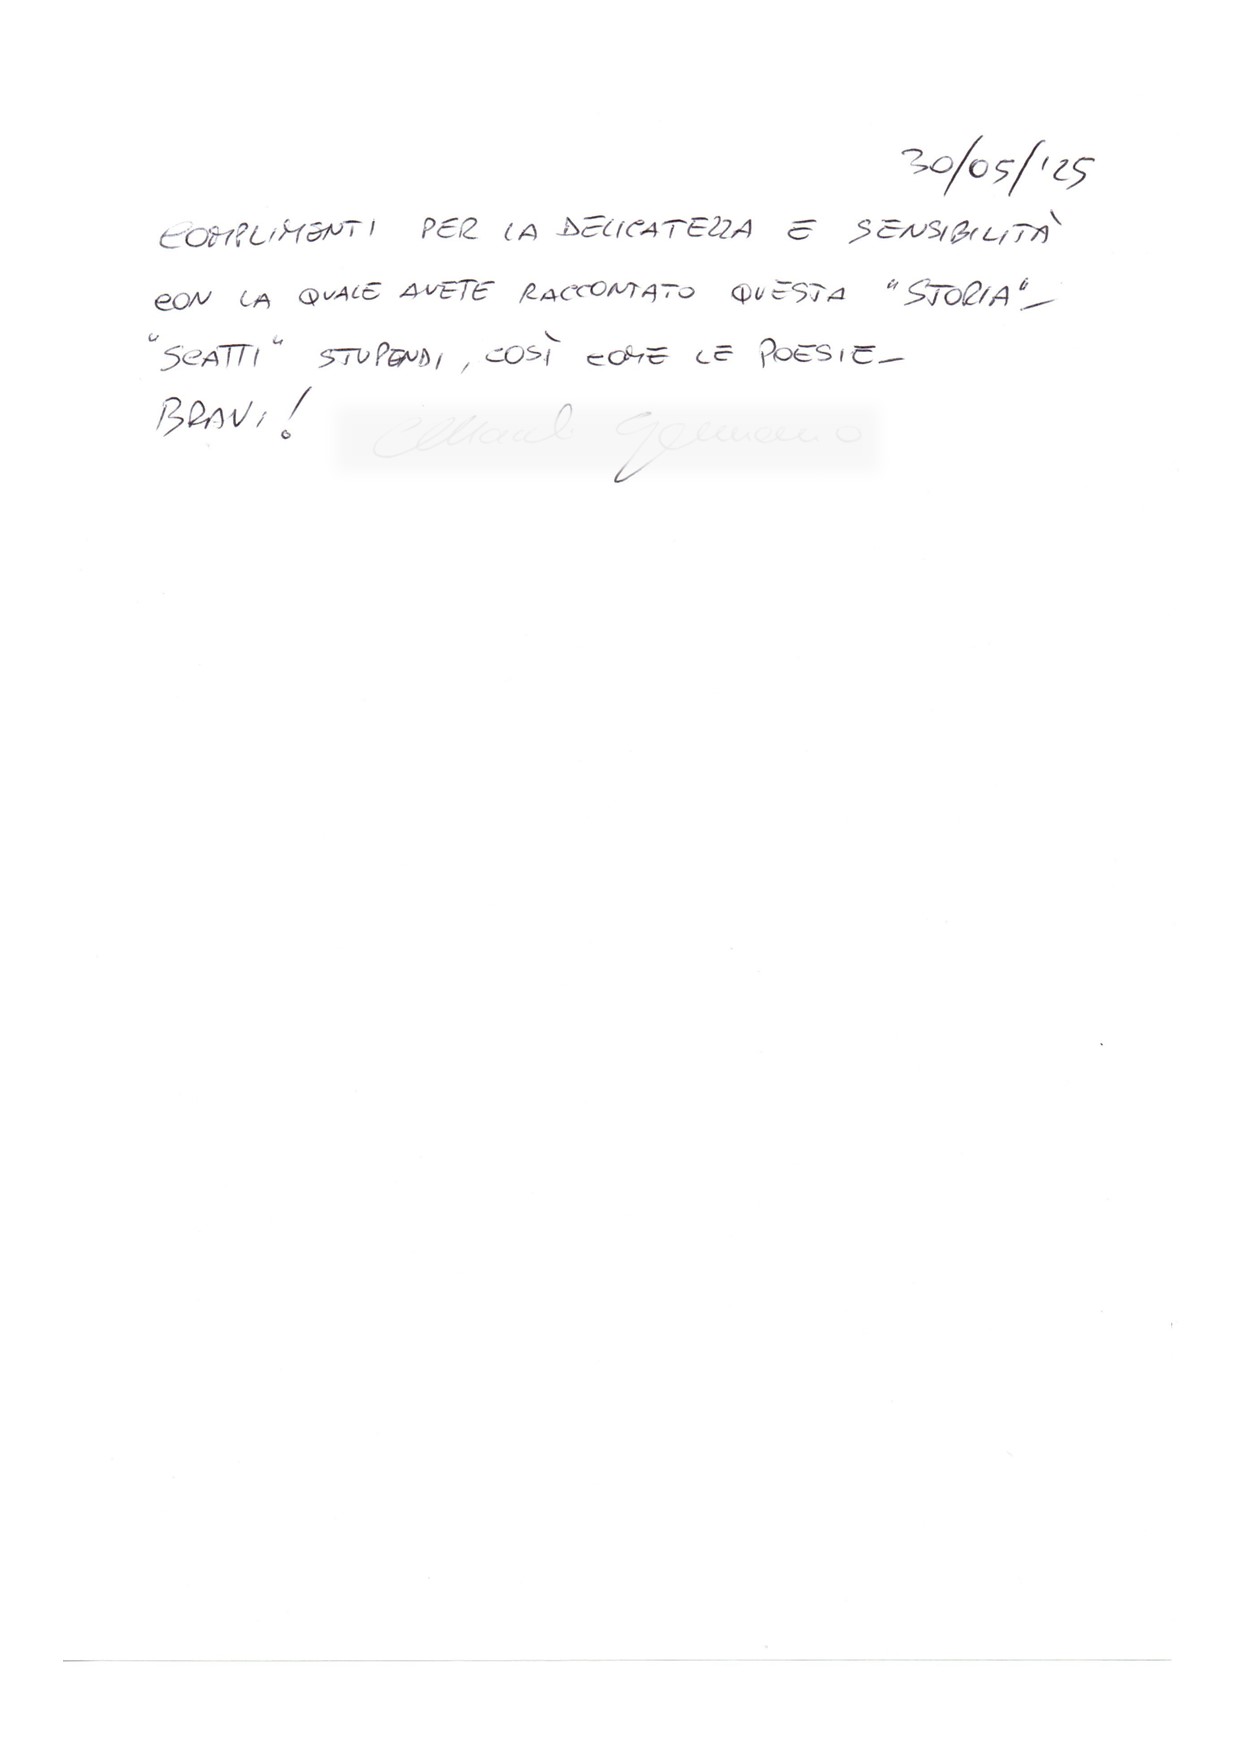 30/05/'25
COMPLIMENTI PER LA DELICATEZZA E SENSIBILITÀ
CON LA QUALE AVETE RACCONTATO QUESTA "STORIA"_
"SCATTI" STUPENDI, COSÌ COME LE POESIE_
BRAVI!